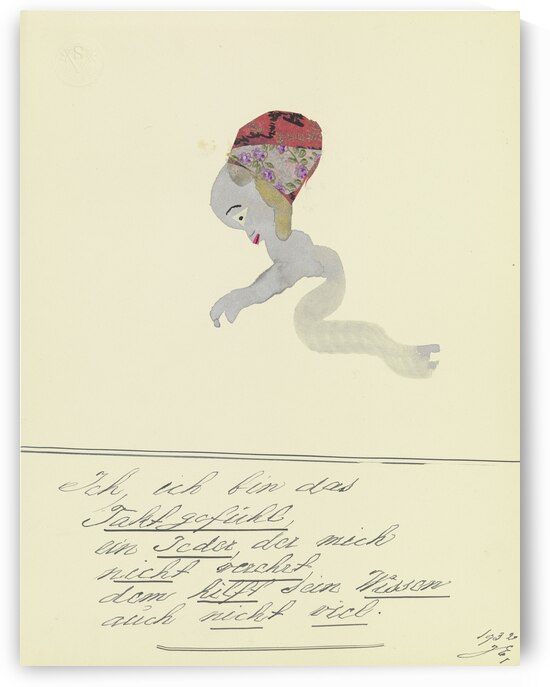 Ich, ich bin das
Taktgefühl,
ein Jeder, der mich
nicht verehrt,
dem hilft sein Wissen
auch nicht viel.
1932